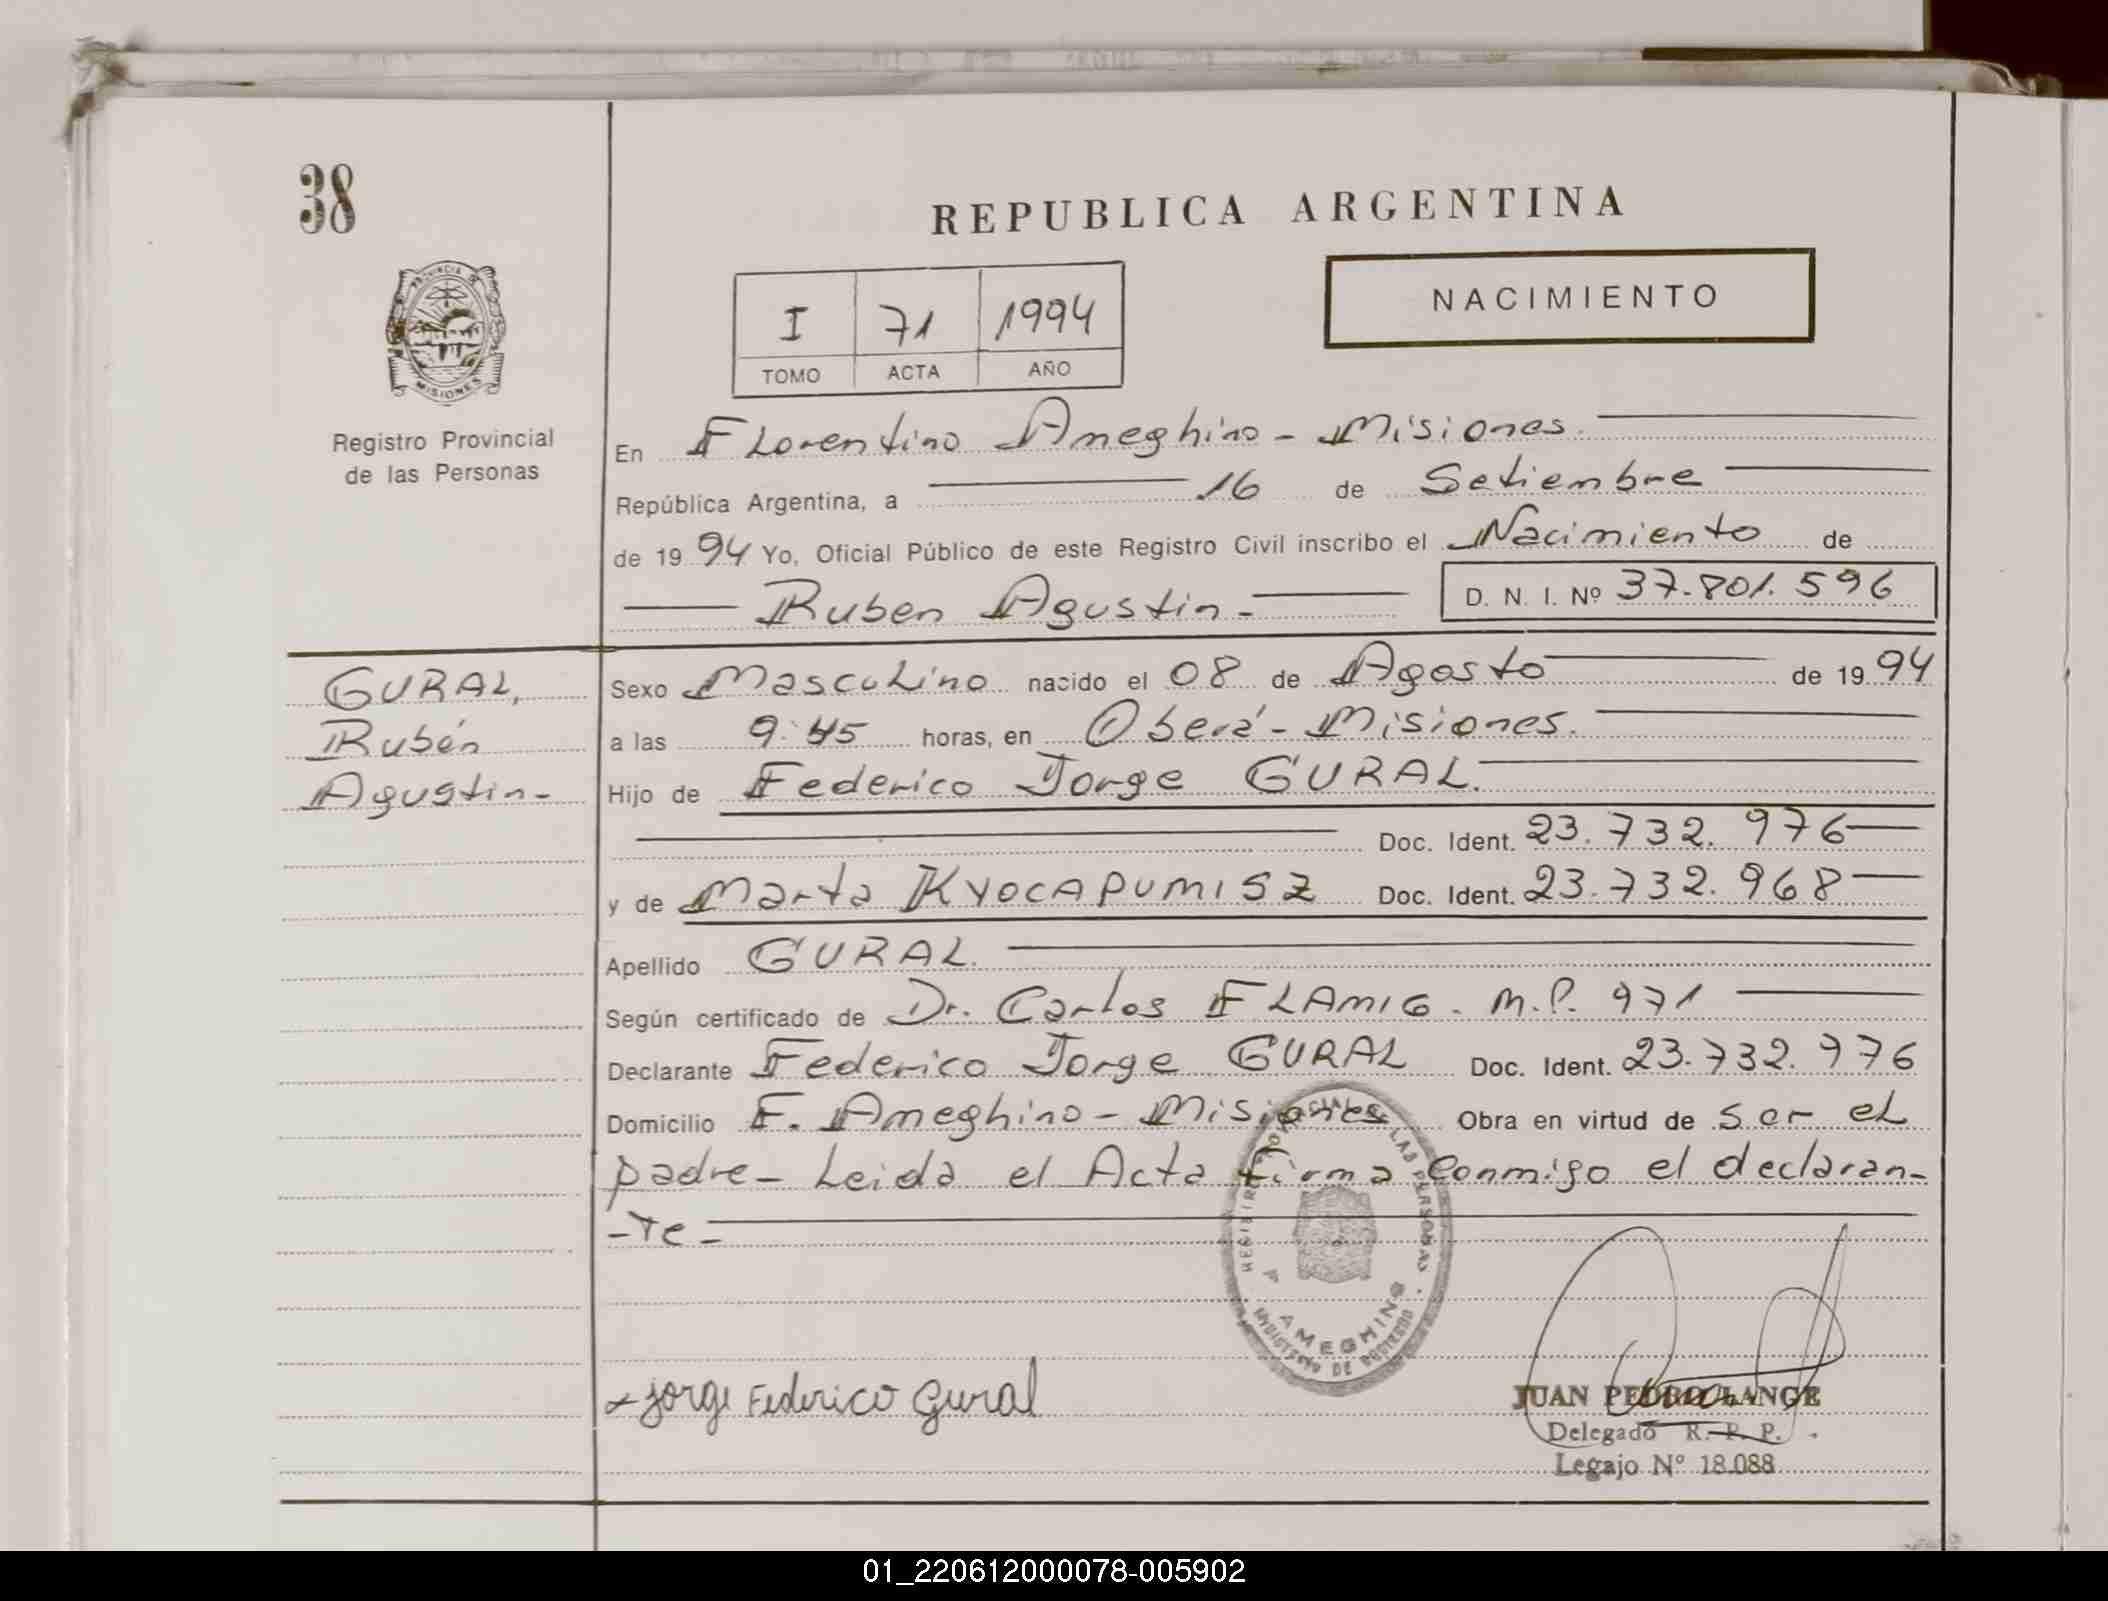 38
REPUBLICA ARGENTINA
PROVINCIA DE
MISIONES
Registro Provincial
de las Personas
I 71 1994
TOMO ACTA AÑO
NACIMIENTO
En Florentino Ameghino - Misiones.
República Argentina, a 16 de Setiembre
de 1994 Yo, Oficial Público de este Registro Civil inscribo el Nacimiento de
Ruben Agustin - D. N. I. Nº 37.801.596
GURAL,
Rubén
Agustin-
Sexo Masculino nacido el 08 de Agosto de 1994
a las 9:45 horas, en Oberá - Misiones.
Hijo de Federico Jorge GURAL.
Doc. Ident. 23.732.976
y de Marta KYOCAPUMISZ Doc. Ident. 23.732.968
Apellido GURAL.
Según certificado de Dr. Carlos FLAMIG. M.P. 971
Declarante Federico Jorge GURAL Doc. Ident. 23.732.976
Domicilio F. Ameghino - Misiones Obra en virtud de ser el
padre - Leida el Acta firma conmigo el declaran-
-te -
LAS PERSONAS
AMEGHINO
Jorge Federico Gural
JUAN PEDRO LANGE
Delegado R. P. P.
Legajo Nº 18.088
01_220612000078-005902